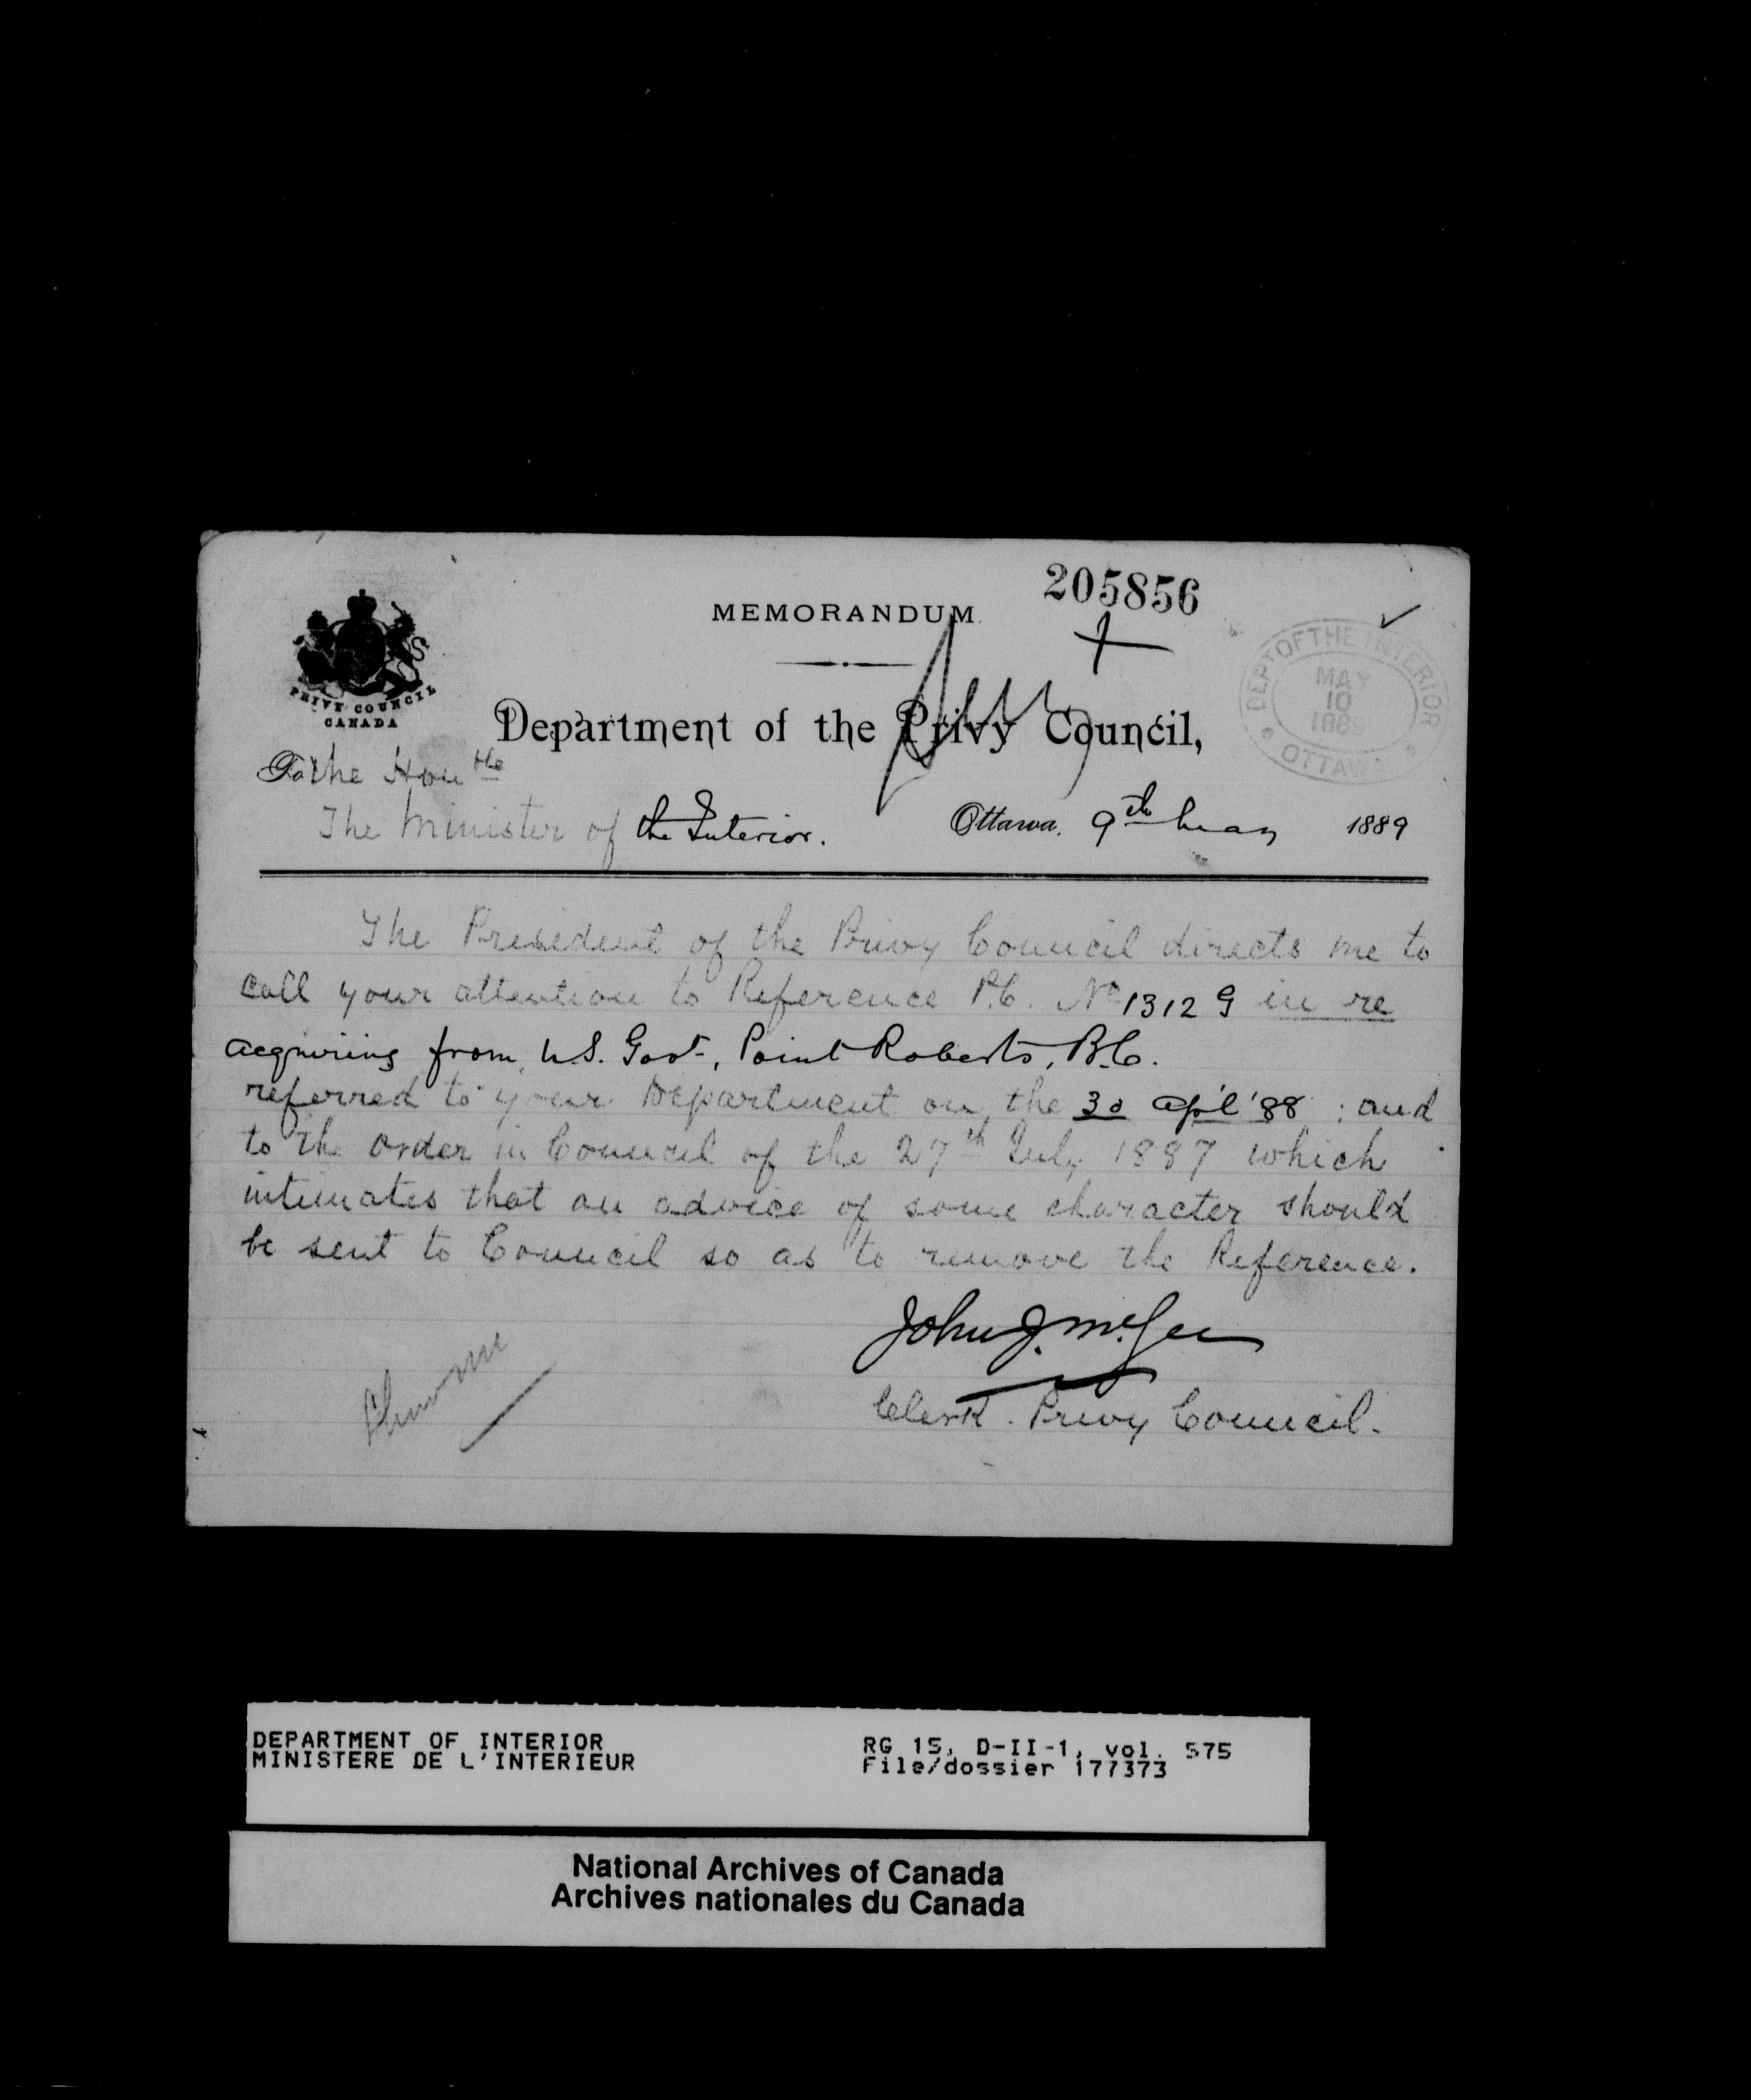 205856
MEMORANDUM.
PRIVY COUNCIL
CANADA
DEPT OF THE INTERIOR
MAY
10
1889
OTTAWA
Department of the Privy Council,
To the Honble
The Minister of the Interior.
Ottawa, 9th May 1889
The President of the Privy Council directs me to
call your attention to Reference P.C. No 1312 G in re
acquiring from U.S. Govt, Point Roberts, B.C.
referred to your Department on the 30 apl '88 ; and
to the Order in Council of the 27th July 1887 which
intimates that an advice of some character should
be sent to Council so as to remove the Reference.
John J. McGee
Clerk. Privy Council.
DEPARTMENT OF INTERIOR
MINISTERE DE L'INTERIEUR
RG 15, D-II-1, vol. 575
File/dossier 177373
National Archives of Canada
Archives nationales du Canada